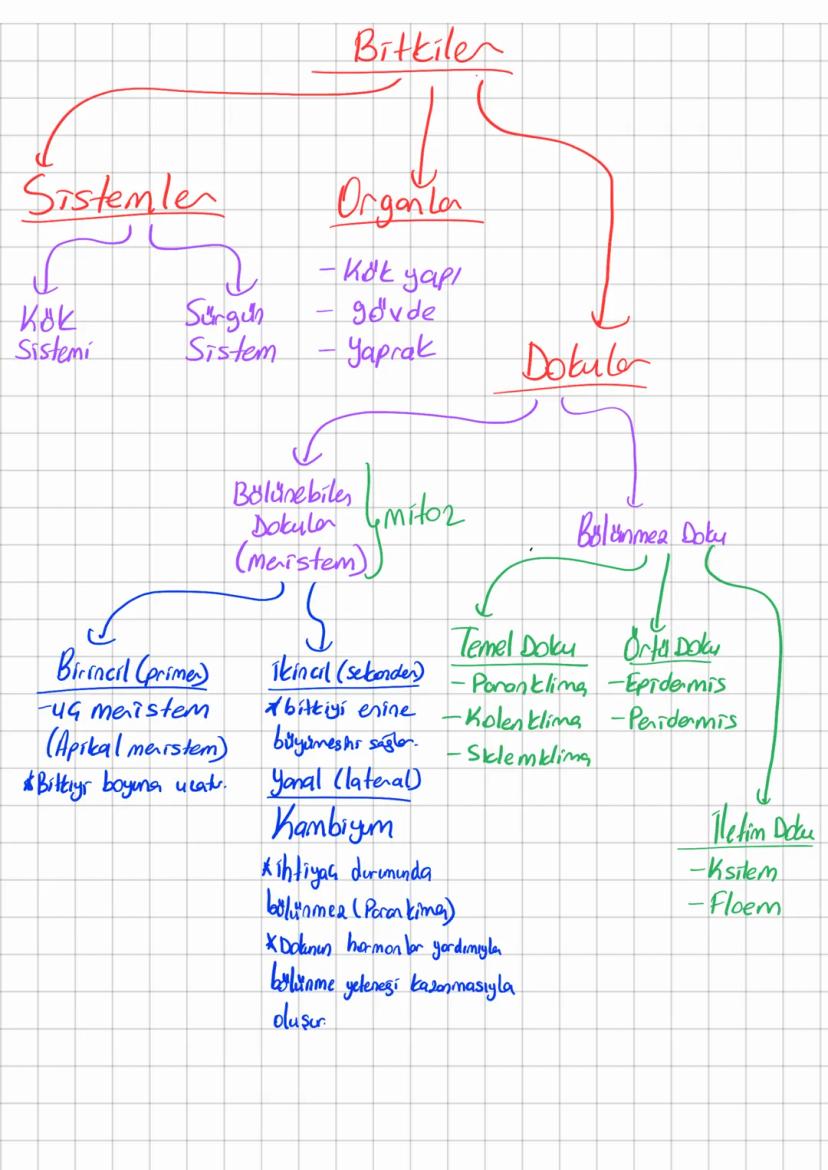 Bitkiler
Sistemler
Organlar
Kök
Sistemi
Sürgün
Sistem
- Kök yapı
- gövde
- yaprak
Dokular
Bölünebilen
Dokular
(meristem)
mitoz
Bölünmez Doku
Birincil (primer)
-uç meristem
(Apikal meristem)
*Bitkiyi boyuna uzatır.
ikincil (sekonder)
*bitkiyi enine
büyümesini sağlar.
yanal (lateral)
Kambiyum
*ihtiyaç durumunda
bölünmez (Parankima)
*Dokunun hormonlar yardımıyla
bölünme yeteneği kazanmasıyla
oluşur.
Temel Doku
- Parankima
- Kolenkima
- Sklemkima
Örtü Doku
-Epidermis
-Peridermis
İletim Doku
-Ksilem
- Floem